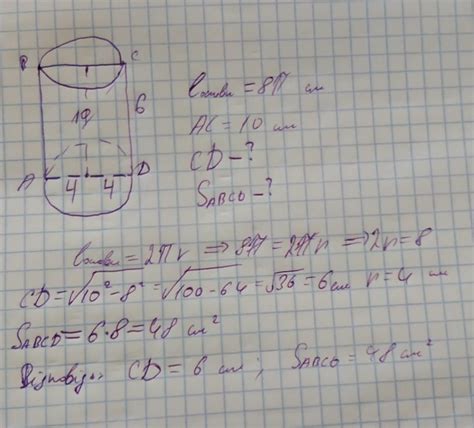 B C
10
6
A 4 4 D
l основи = 8π см
AC = 10 см
CD - ?
S ABCD - ?
l основи = 2πr ⇒ 8π = 2πr ⇒ 2r = 8
CD = √10² - 8² = √100 - 64 = √36 = 6 см r = 4 см
S ABCD = 6 · 8 = 48 см²
Відповідь: CD = 6 см; S ABCD = 48 см²